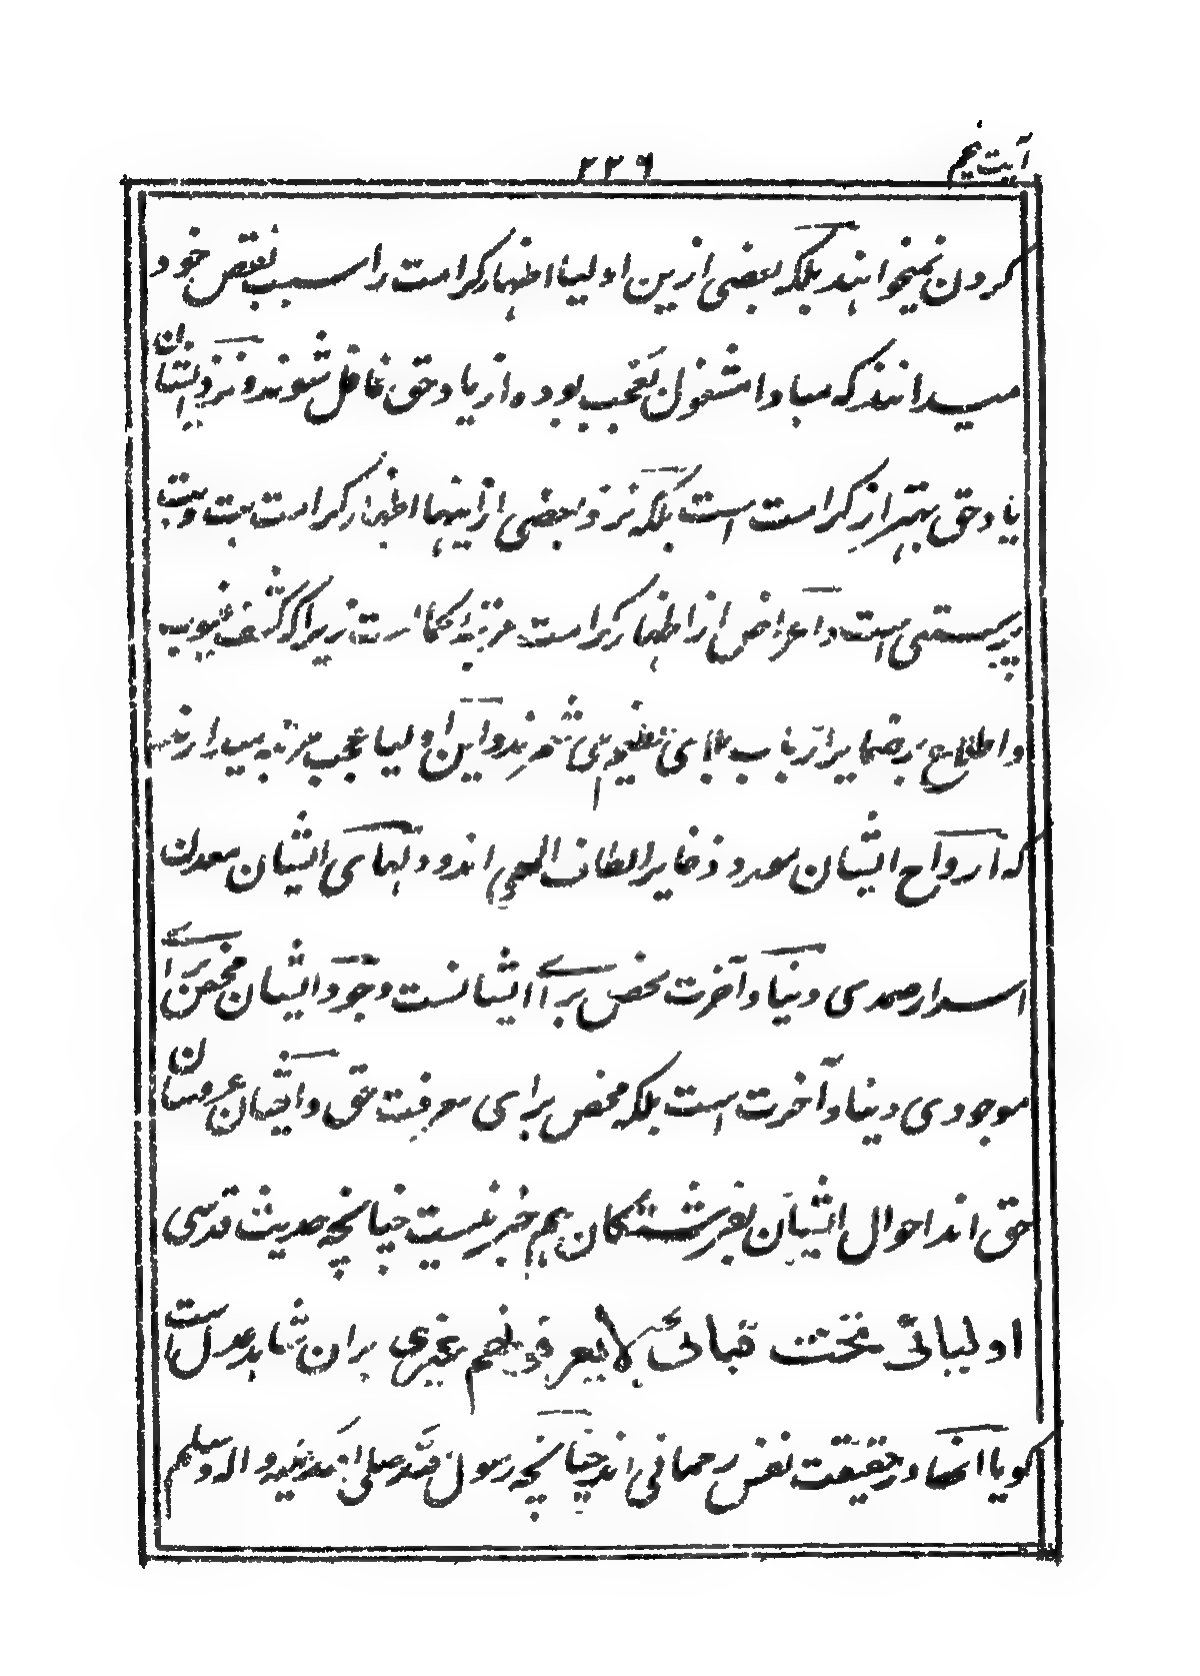 آیت پنجم
۲۲۶
کردن نمیخواهند بلکه بعضی ازین اولیا اظهار کرامت را سبب نقص خود
میدانند که مبادا مشغول تعجب بوده از یاد حق غافل شوند و نزد ایشان
یاد حق بهتر از کرامت است بلکه نزد بعضی ازینها اظهار کرامت بت و بت
پرستی است و اعراض از اظهار کرامت مرتبه کمالست زیرا که کشف غیوب
و اطلاع بر ضمایر ارباب شمرند و این اولیا عجب مرتبه میدارند
که ارواح ایشان مورد ذخایر الطاف الهی اند و دلهای ایشان معدن
اسرار صمدی دنیا و آخرت محض برای ایشانست وجود ایشان محض برای
موجودی دنیا و آخرت است بلکه محض برای معرفت حق و ایشان عروسان
حق اند احوال ایشان بفرشتگان هم خبر نیست چنانچه حدیث قدسی
اولیائی تحت قبائی لا یعرفونهم غیری بران شاهد عدل است
گویا آنها در حقیقت نفس رحمانی اند چنانچه رسول الله صلی الله علیه و اله وسلم